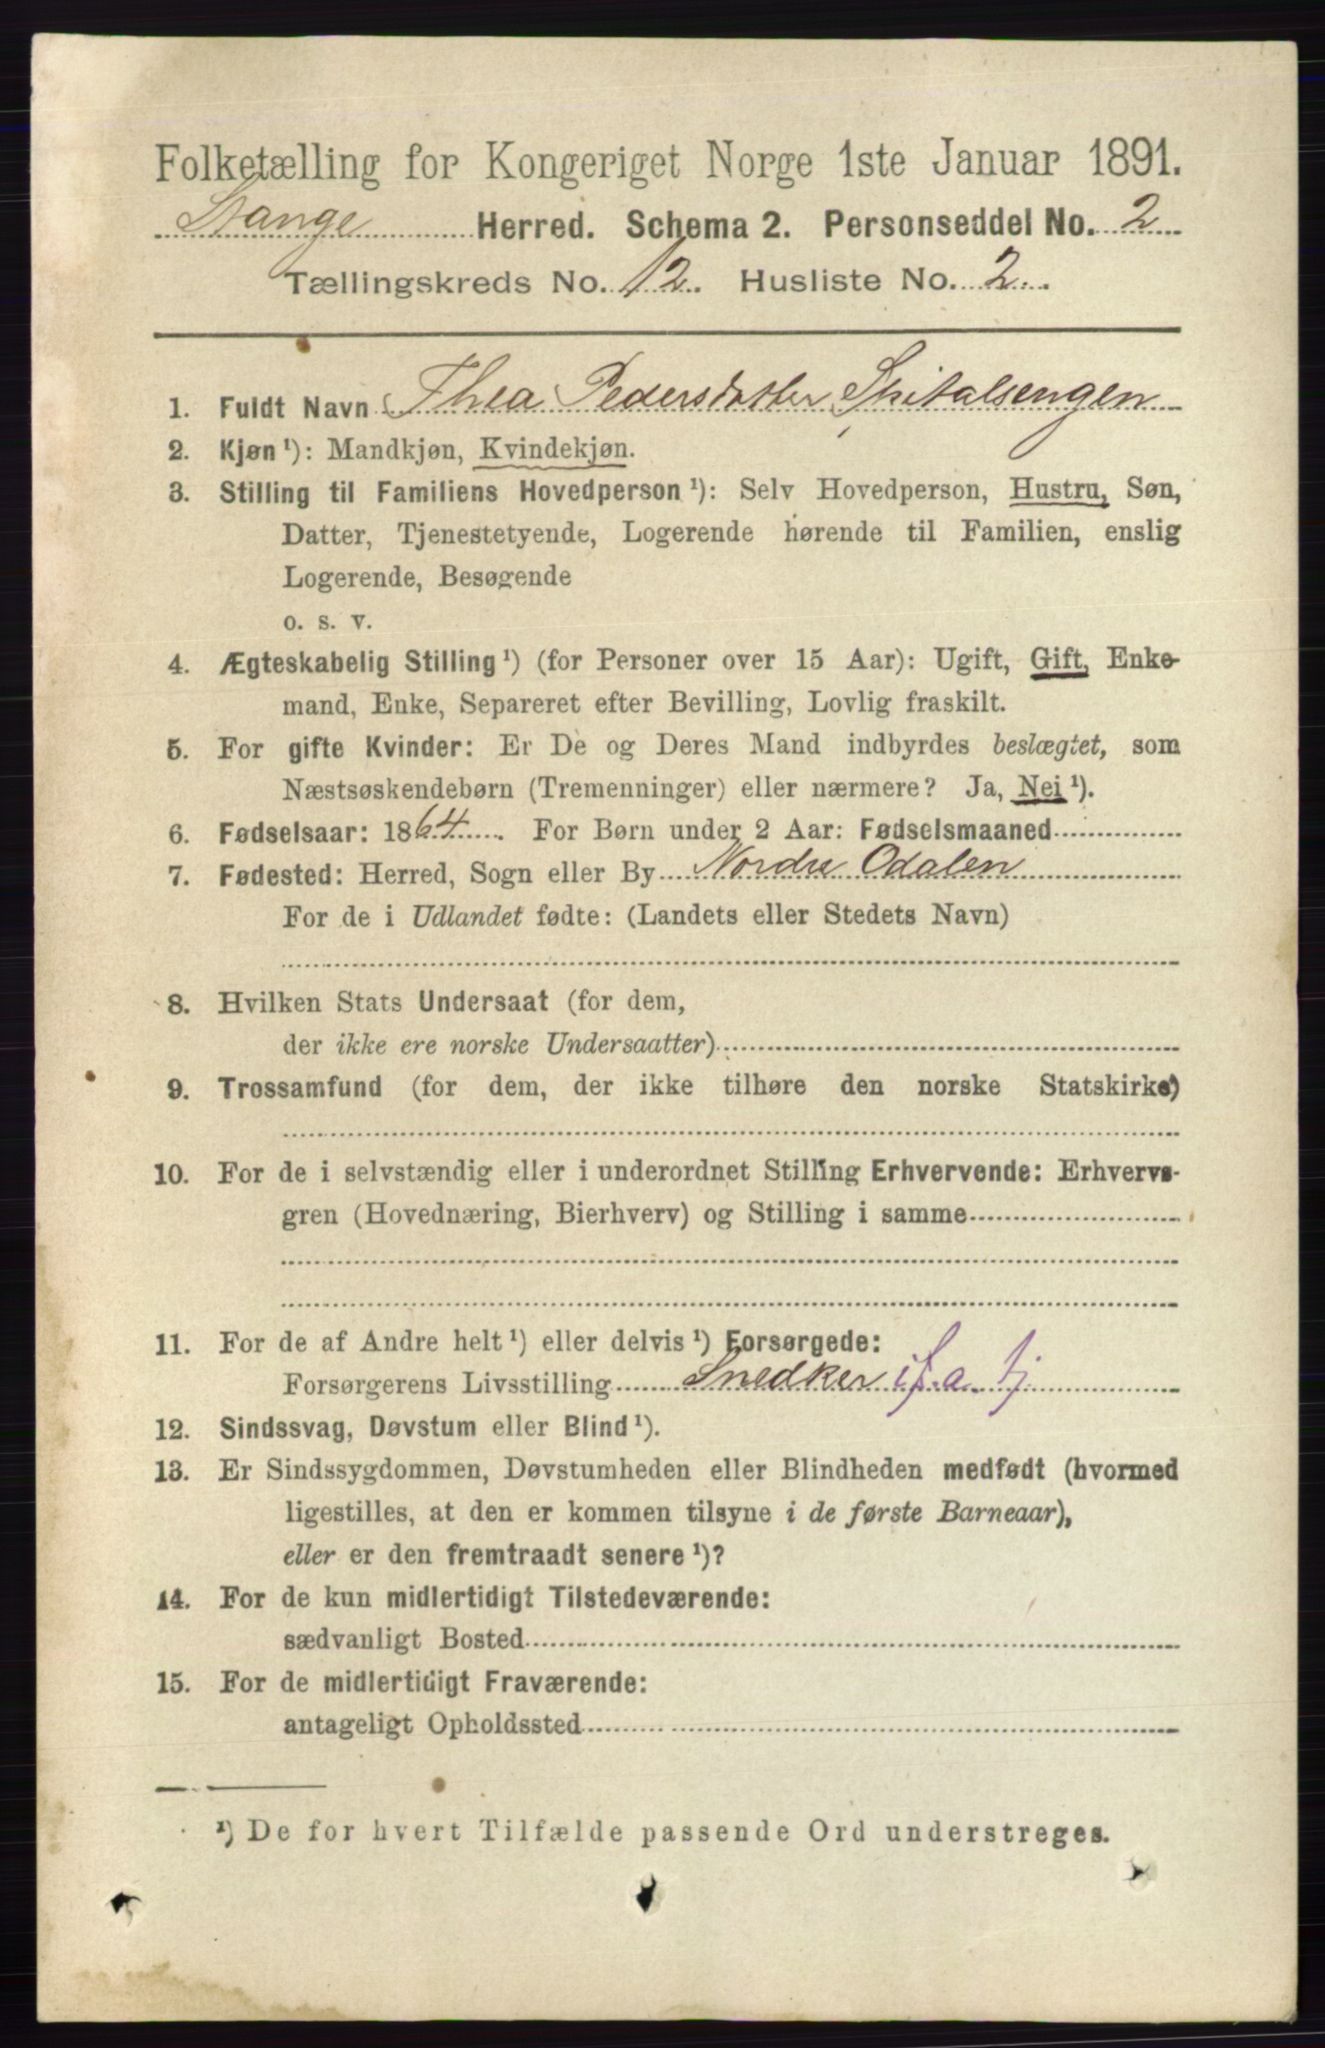 Folketælling for Kongeriget Norge 1ste Januar 1891.
Stange Herred. Schema 2. Personseddel No. 2
Tællingskreds No. 12. Husliste No. 2
1. Fuldt Navn Thea Pedersdatter Spitalsengen
2. Kjøn ¹): Mandkjøn, Kvindekjøn.
3. Stilling til Familiens Hovedperson ¹): Selv Hovedperson, Hustru, Søn,
Datter, Tjenestetyende, Logerende hørende til Familien, enslig
Logerende, Besøgende
o. s. v.
4. Ægteskabelig Stilling ¹) (for Personer over 15 Aar): Ugift, Gift, Enke-
mand, Enke, Separeret efter Bevilling, Lovlig fraskilt.
5. For gifte Kvinder: Er De og Deres Mand indbyrdes beslægtet, som
Næstsøskendebørn (Tremenninger) eller nærmere? Ja, Nei ¹).
6. Fødselsaar: 1864. For Børn under 2 Aar: Fødselsmaaned
7. Fødested: Herred, Sogn eller By Nordre Odalen
For de i Udlandet fødte: (Landets eller Stedets Navn)
8. Hvilken Stats Undersaat (for dem,
der ikke ere norske Undersaatter)
9. Trossamfund (for dem, der ikke tilhøre den norske Statskirke)
10. For de i selvstændig eller i underordnet Stilling Erhvervende: Erhvervs-
gren (Hovednæring, Bierhverv) og Stilling i samme
11. For de af Andre helt ¹) eller delvis ¹) Forsørgede:
Forsørgerens Livsstilling Snedker
12. Sindssvag, Døvstum eller Blind ¹).
13. Er Sindssygdommen, Døvstumheden eller Blindheden medfødt (hvormed
ligestilles, at den er kommen tilsyne i de første Barneaar),
eller er den fremtraadt senere ¹)?
14. For de kun midlertidigt Tilstedeværende:
sædvanligt Bosted
15. For de midlertidigt Fraværende:
antageligt Opholdssted
¹) De for hvert Tilfælde passende Ord understreges.